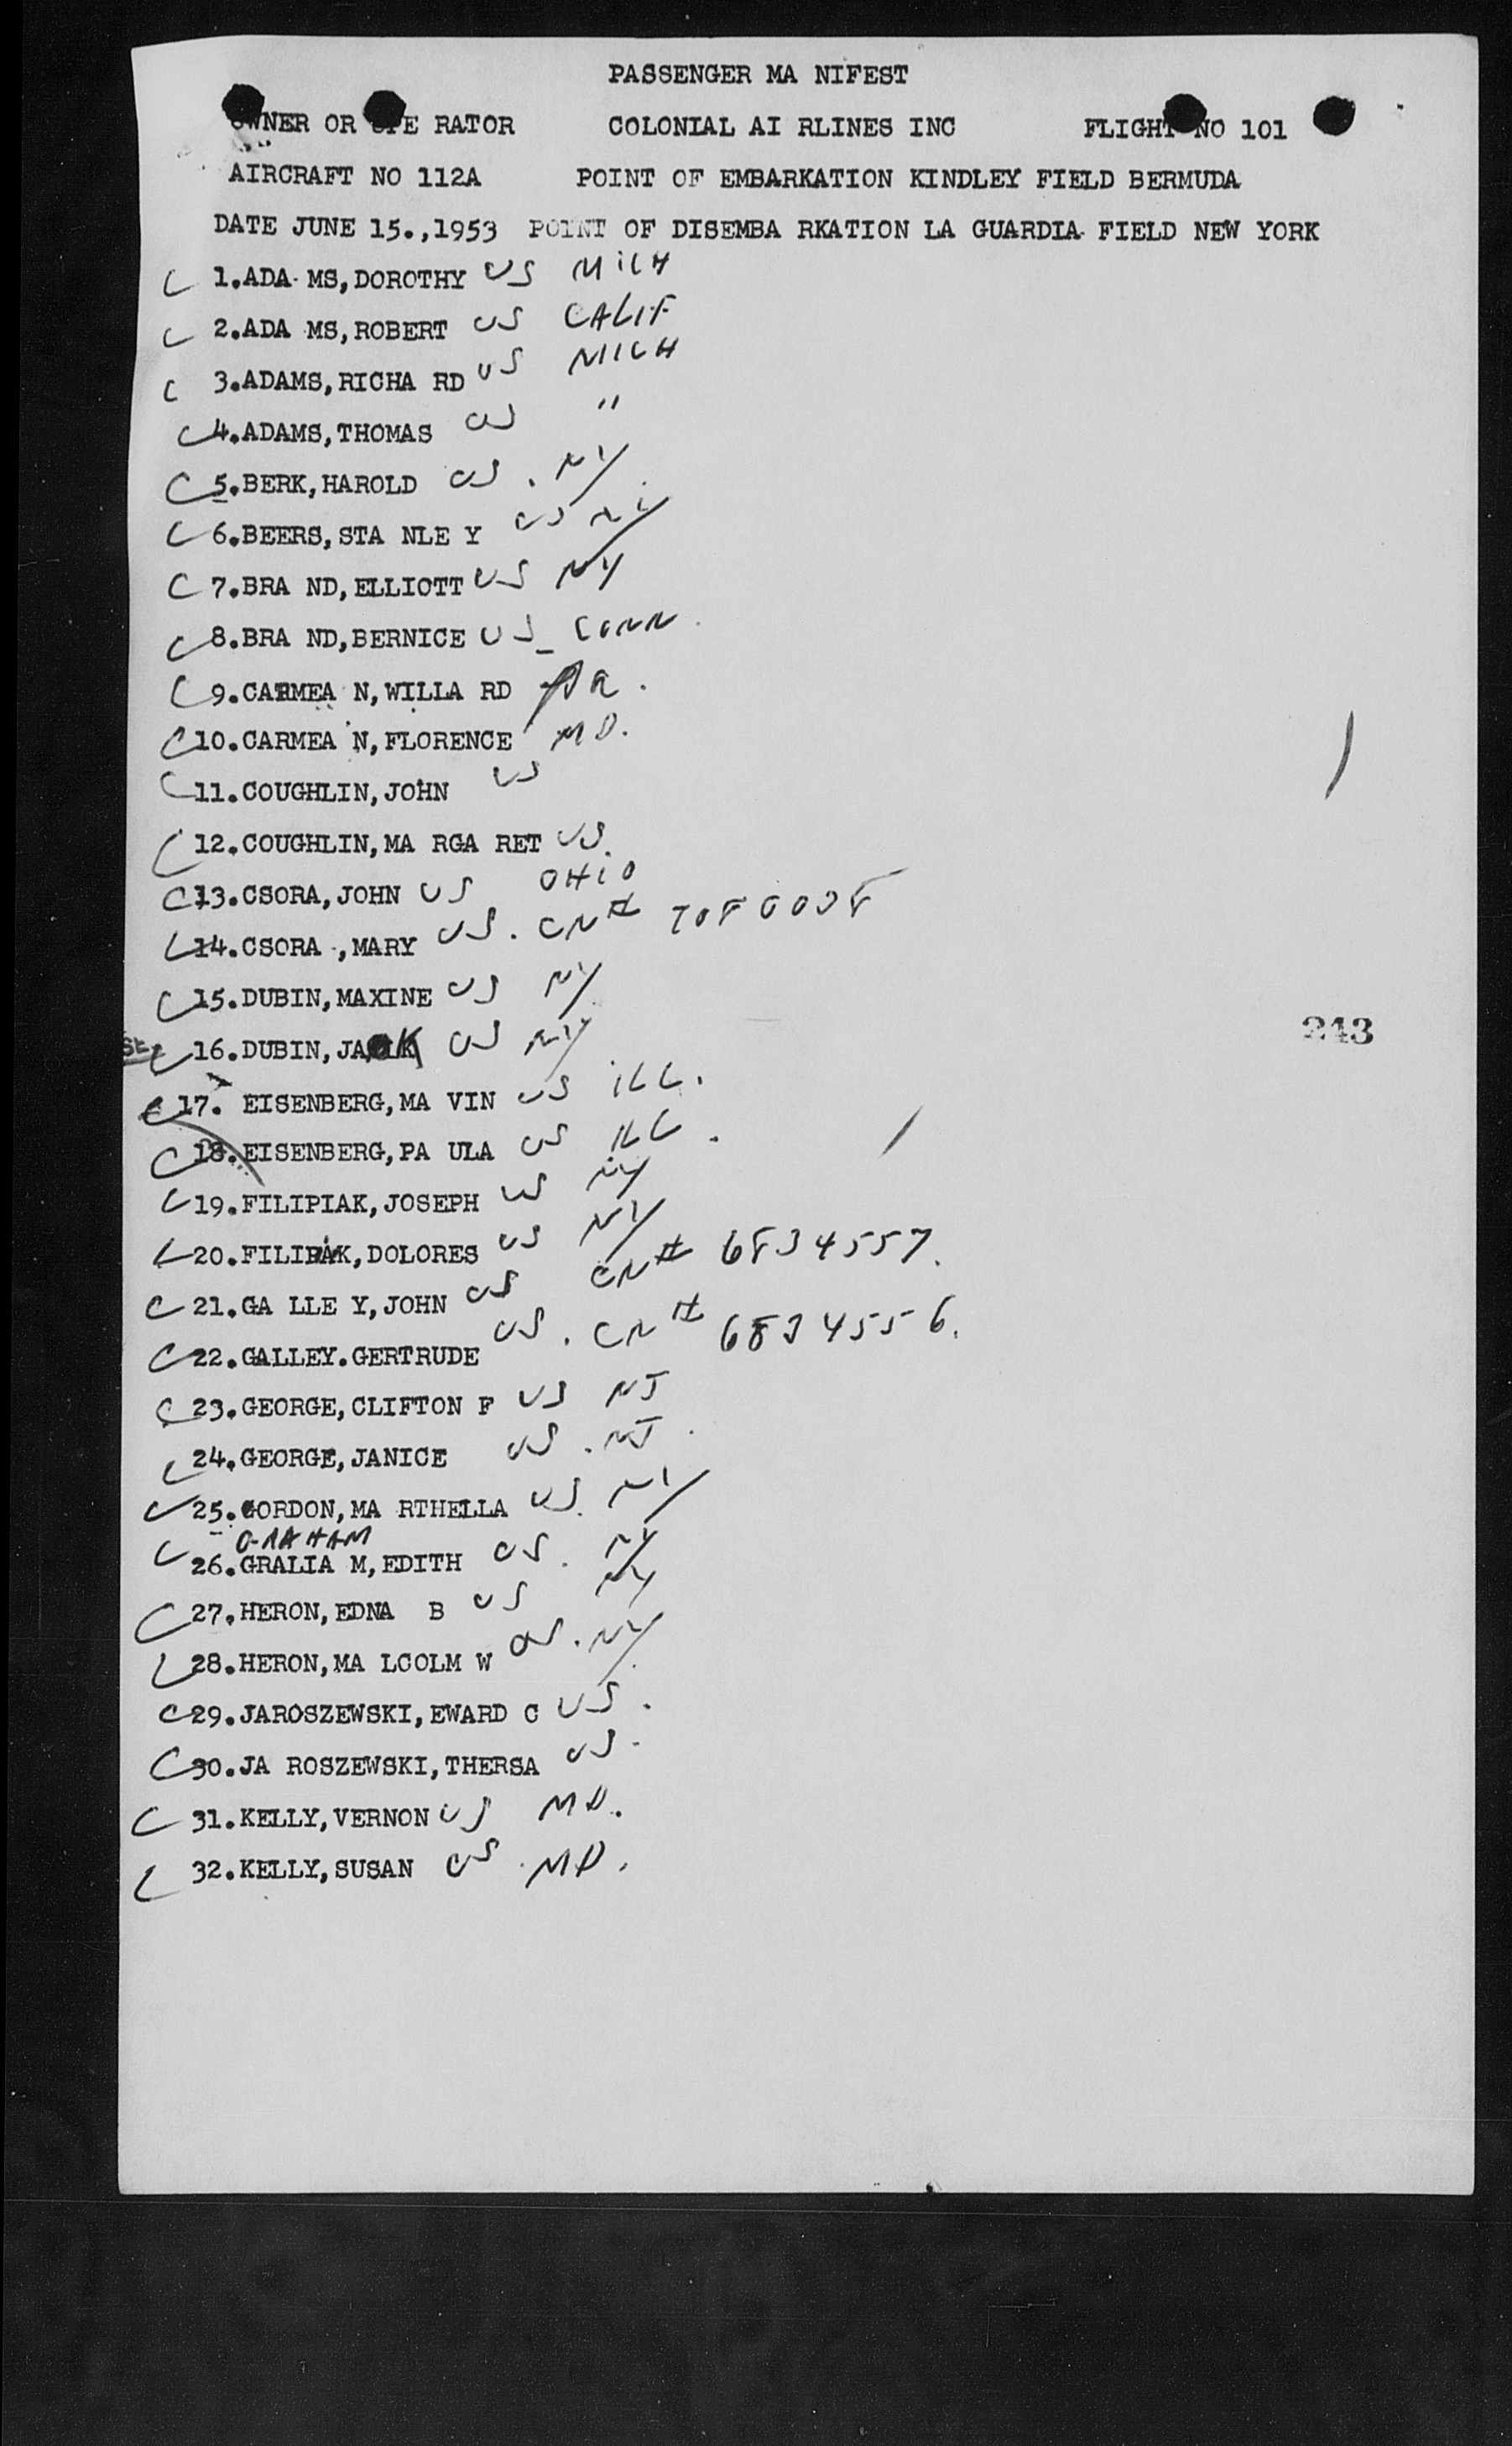 PASSENGER MA NIFEST
OWNER OR OPE RATOR COLONIAL AI RLINES INC FLIGHT NO 101
AIRCRAFT NO 112A POINT OF EMBARKATION KINDLEY FIELD BERMUDA
DATE JUNE 15.,1953 POINT OF DISEMBA RKATION LA GUARDIA FIELD NEW YORK
C 1.ADA MS,DOROTHY US MICH
C 2.ADA MS,ROBERT US CALIF
C 3.ADAMS,RICHA RD US MICH
C 4.ADAMS,THOMAS US "
C 5.BERK,HAROLD US. NY
C 6.BEERS,STA NLE Y US NY
C 7.BRA ND,ELLIOTT US NY
C 8.BRA ND,BERNICE US CONN
C 9.CARMEA N,WILLA RD PA.
C 10.CARMEA N,FLORENCE MD.
C 11.COUGHLIN,JOHN US
C 12.COUGHLIN,MA RGA RET US.
C 13.CSORA,JOHN US OHIO
C 14.CSORA ,MARY US. CN#
C 15.DUBIN,MAXINE US NY
C 16.DUBIN,JACK US NY
243
C 17. EISENBERG,MA VIN US ILL.
C 18.EISENBERG,PA ULA US ILL.
C 19.FILIPIAK,JOSEPH US NY
C 20.FILIPIAK,DOLORES US NY
C 21.GA LLE Y,JOHN US CN# 6834557.
C 22.GALLEY.GERTRUDE US. CN# 6834556.
C 23.GEORGE,CLIFTON F US NJ
C 24.GEORGE,JANICE US. NJ.
C 25.GORDON,MA RTHELLA US. NY
GRAHAM
C 26.GRALIA M,EDITH US. NY
C 27.HERON,EDNA B US NY
C 28.HERON,MA LCOLM W US. NY
C 29.JAROSZEWSKI,EWARD C US.
C 30.JA ROSZEWSKI,THERSA US.
C 31.KELLY,VERNON US MD.
C 32.KELLY,SUSAN US MD.